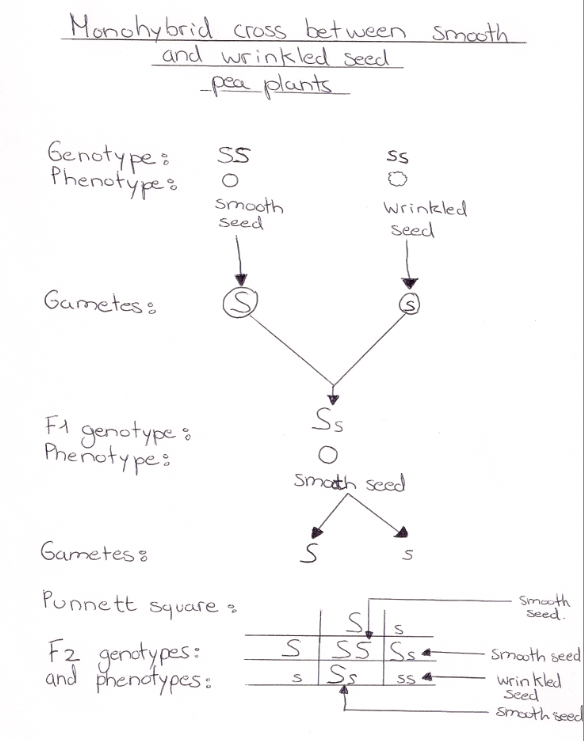 Monohybrid cross between smooth
and wrinkled seed
pea plants
Genotype: SS ss
Phenotype:
smooth seed
wrinkled seed
Gametes: S s
F1 genotype: Ss
Phenotype:
smooth seed
Gametes: S s
Punnett square:
S s
smooth seed.
F2 genotypes: S SS Ss smooth seed
and phenotypes: s Ss ss wrinkled seed
smooth seed